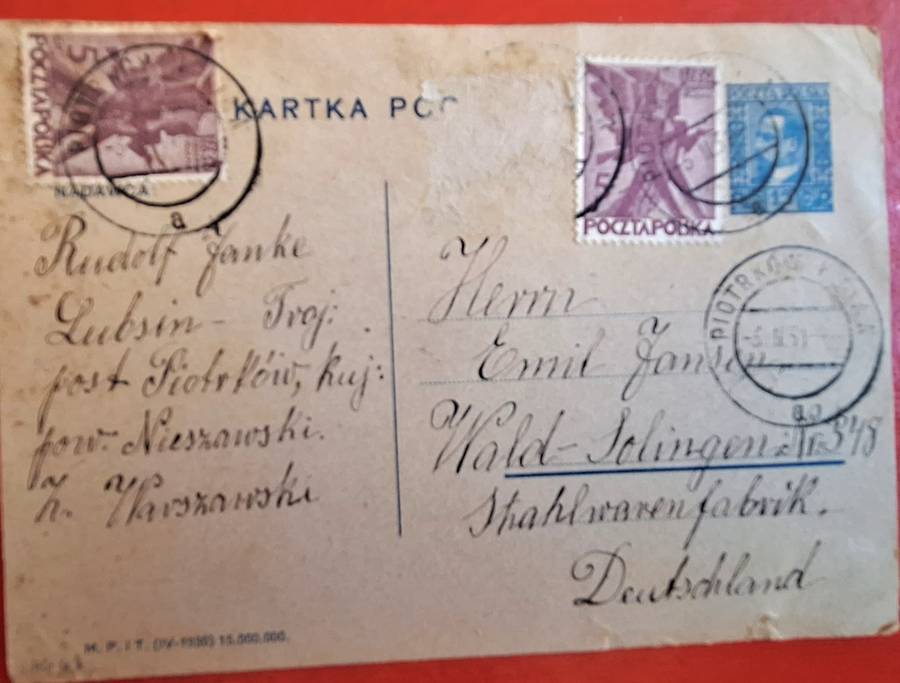 5
POCZTA POLSKA
KARTKA POC
5
POCZTA POLSKA
POCZTA POLSKA
15
NADAWCA
a
a
PIOTRKÓW KUJ.
a
Rudolf Janke
Lubsin - Troj:
post Piotrków, kuj:
pow. Nieszawski.
Z. Warszawski
Herrn
Emil Jansen
Wald-Solingen Nr. 348
Stahlwarenfabrik.
Deutschland
M. P. i T. (IV-1930) 15.000.000.